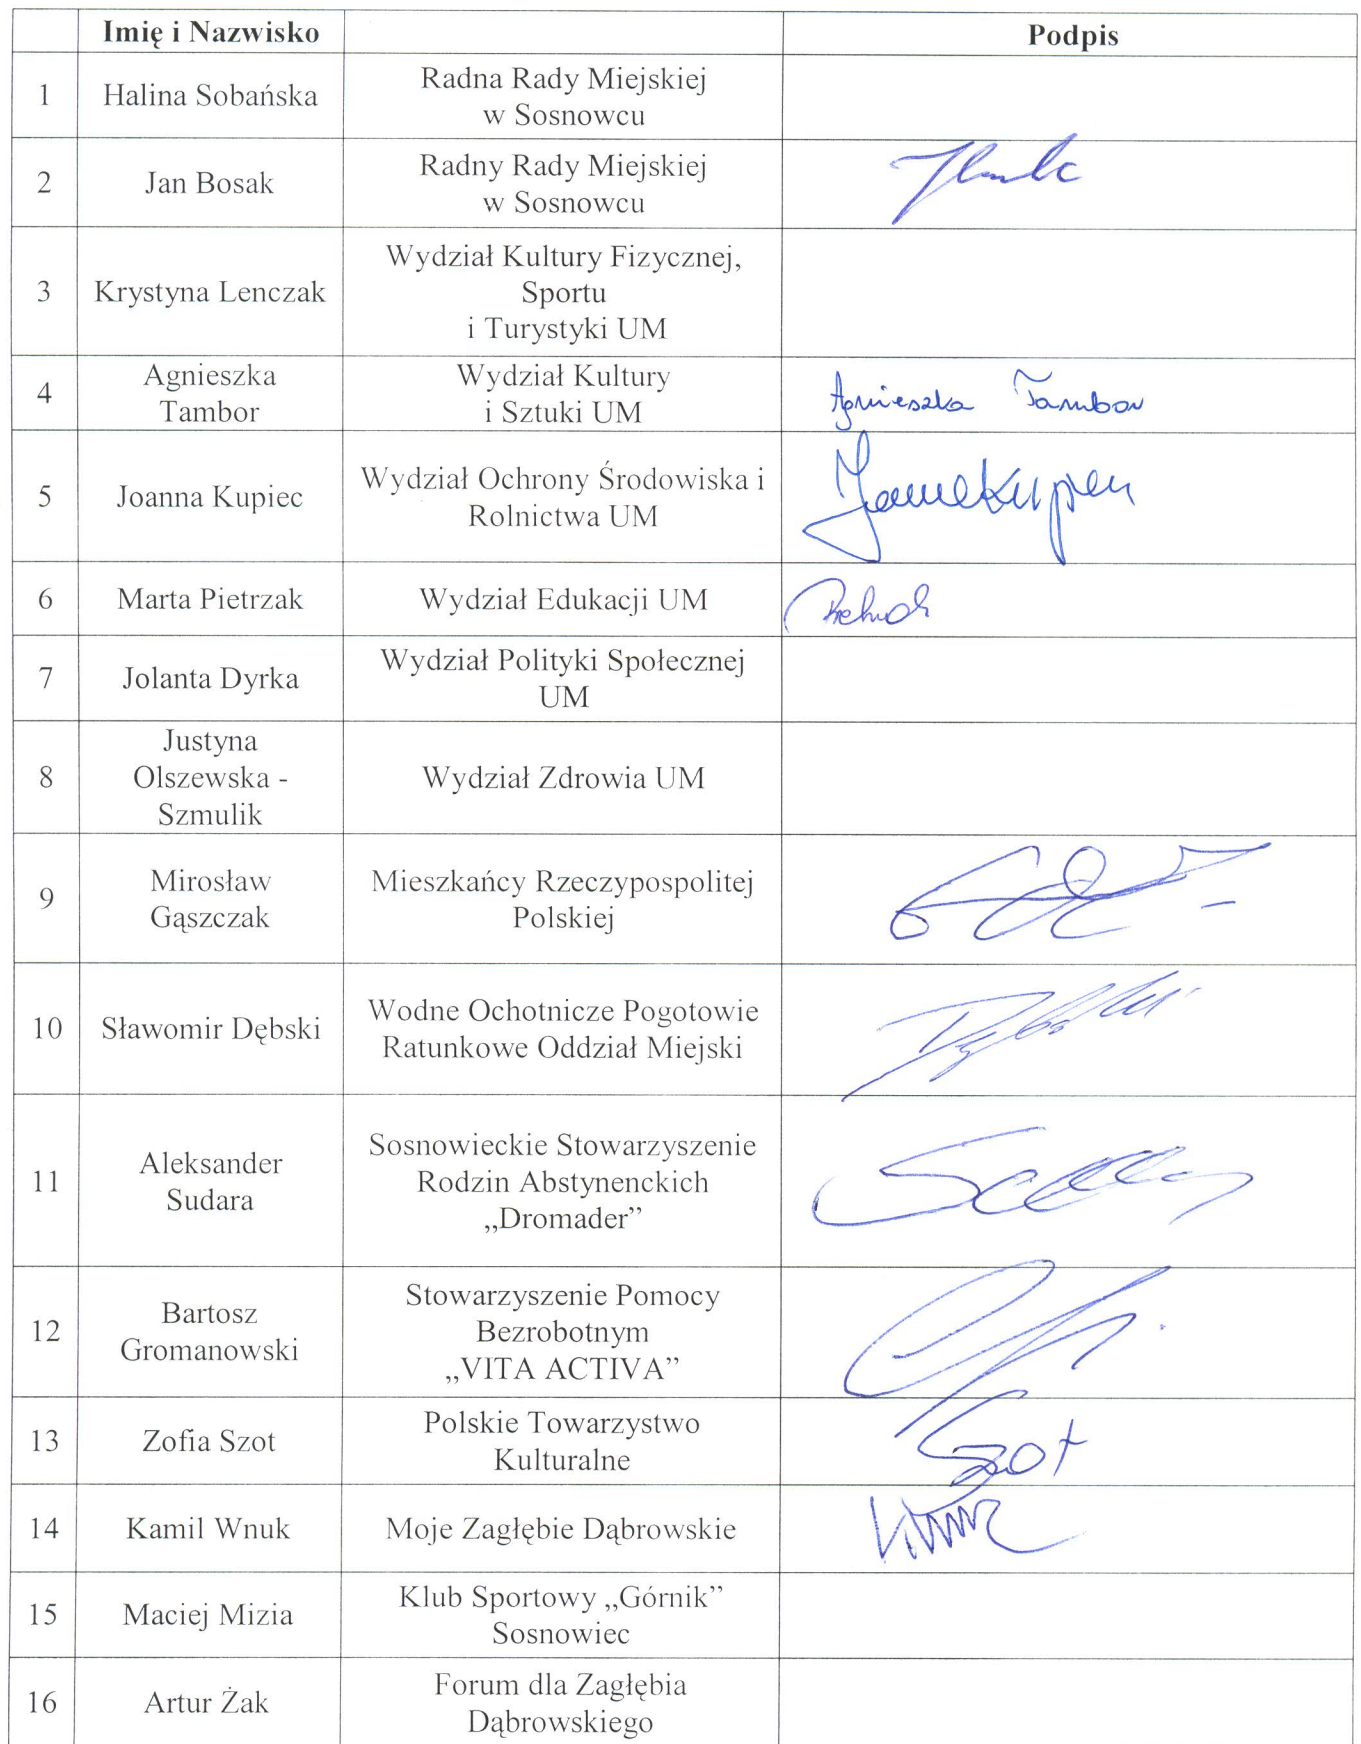 Imię i Nazwisko Podpis
1 Halina Sobańska Radna Rady Miejskiej
w Sosnowcu
2 Jan Bosak Radny Rady Miejskiej
w Sosnowcu
3 Krystyna Lenczak Wydział Kultury Fizycznej,
Sportu
i Turystyki UM
4 Agnieszka
Tambor
Wydział Kultury
i Sztuki UM
Agnieszka Tambor
5 Joanna Kupiec Wydział Ochrony Środowiska i
Rolnictwa UM
6 Marta Pietrzak Wydział Edukacji UM
7 Jolanta Dyrka Wydział Polityki Społecznej
UM
8 Justyna
Olszewska -
Szmulik
Wydział Zdrowia UM
9 Mirosław
Gąszczak
Mieszkańcy Rzeczypospolitej
Polskiej
10 Sławomir Dębski Wodne Ochotnicze Pogotowie
Ratunkowe Oddział Miejski
11 Aleksander
Sudara
Sosnowieckie Stowarzyszenie
Rodzin Abstynenckich
„Dromader”
12 Bartosz
Gromanowski
Stowarzyszenie Pomocy
Bezrobotnym
„VITA ACTIVA”
13 Zofia Szot Polskie Towarzystwo
Kulturalne
Szot
14 Kamil Wnuk Moje Zagłębie Dąbrowskie
15 Maciej Mizia Klub Sportowy „Górnik”
Sosnowiec
16 Artur Żak Forum dla Zagłębia
Dąbrowskiego